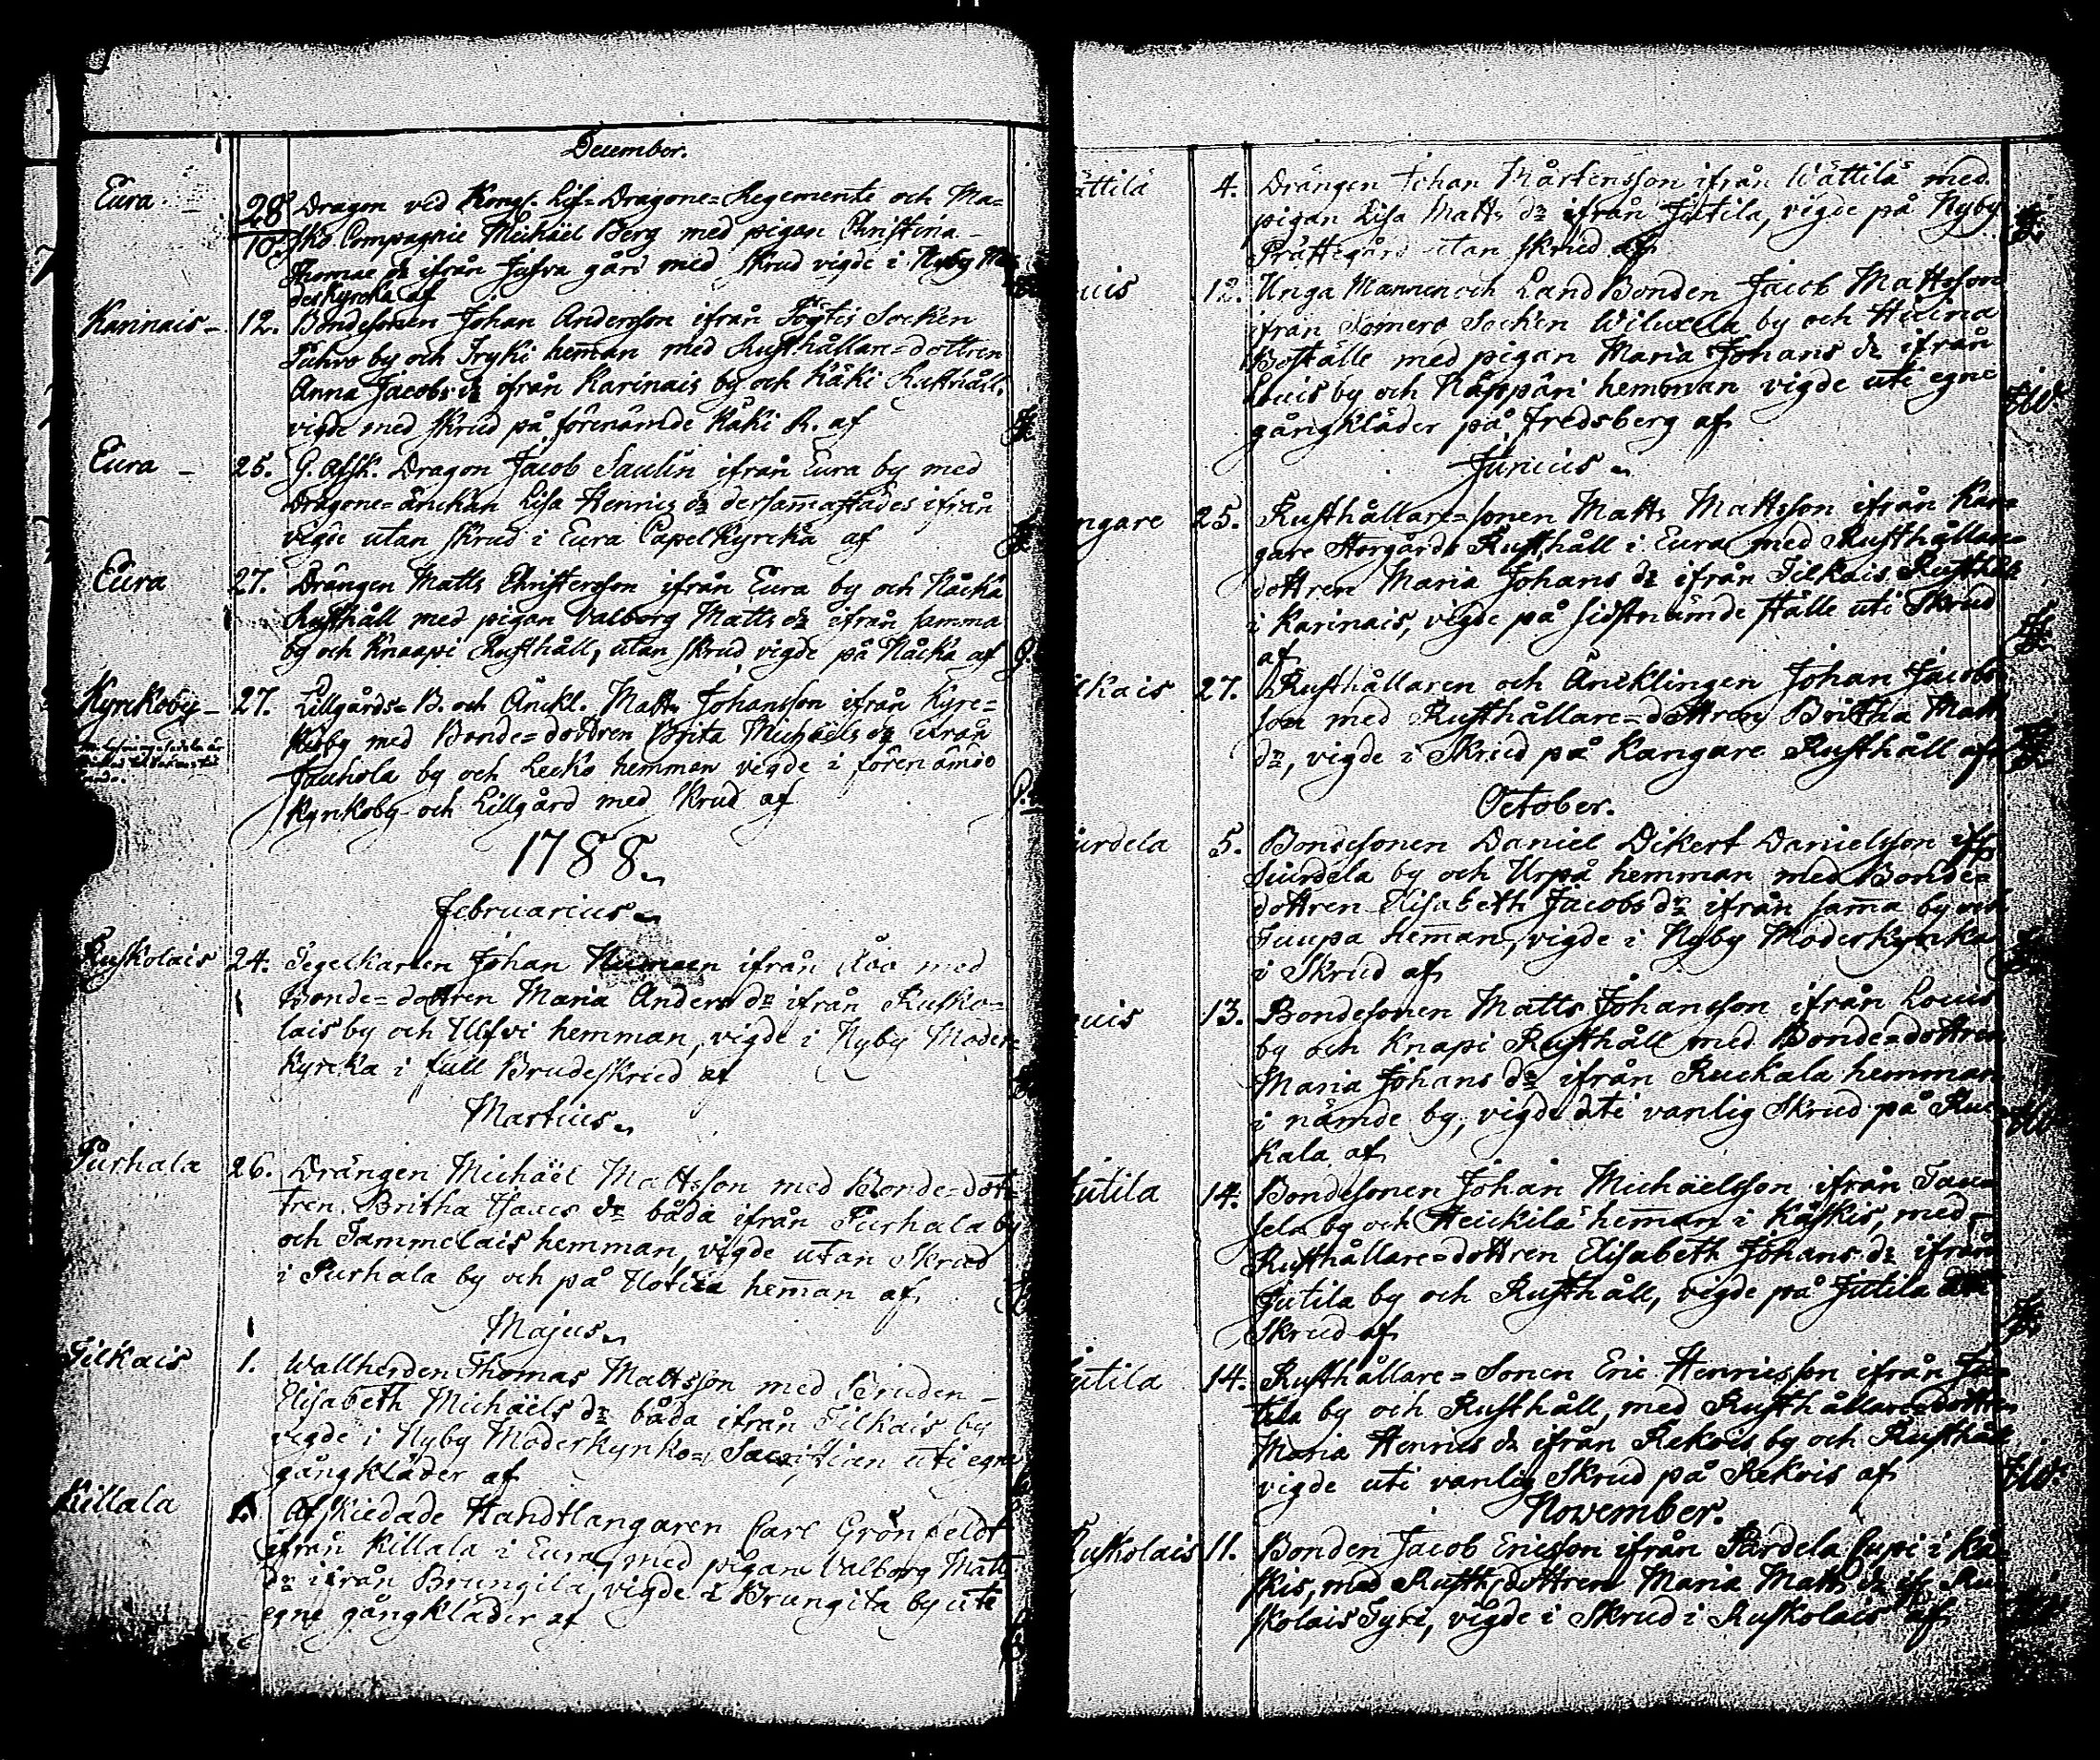 December.
Eura.
28
10.
Dragon ved Kongl. Lif=Dragone=Regemente och Ma=
sko Compagnie Michäel Berg med pigan Christina
Thomae dr ifrån Jusva gård med skrud vigde i Nyby Mo
derkyrcka af
Karinais 12. Bondesonen Johan Andersson ifrån Pöytis Socken
by och Yryki hem̄an med Rusthållare=dottren
Anna Jacobs dr ifrån Karinais by och Käki Rusthåll,
vigde med skrud på förenämde Käki R. af
Eura 25. G. afsk. Dragon Jacob Saulin ifrån Eura by med
Dragone=änckan Lisa Henrics dr dersam̄astädes ifrån
vigde utan skrud i Eura Capelkyrcka af
Eura 27. Drängen Matts Christersson ifrån Eura by och Nåcka
Rusthåll med pigan Valborg Matts dr ifrån samma
by och Knaapi Rusthåll, utan skrud vigde på Nåcka af
Kyrckoby 27. Lillgårds=B. och Änckl. Matts Johansson ifrån Kyrc=
koby med Bonde=dottren Brita Michäels dr ifrån
Jauhola by och Lecko hemman vigde i förenämde
Kyrckoby och Lillgård med skrud af
1788.
Februarius
Ruskolais 24. Segelkarlen Johan ifrån Åbo med
Bonde=dottren Maria Anders dr ifrån Rusko=
lais by och Ulfvi hemman, vigde i Nyby Moder=
kyrcka i full Brudeskrud af
Martius
Purhala 26. Drängen Michäel Mattsson med Bonde=dot=
tren Britha Isaacs dr båda ifrån Purhala by
och Tammelais hemman, vigde utan Skrud
i Purhala by och på hem̄an af
Majus
Tilkais 1. Wallherden Thomas Mattsson med Bruden
Elisabeth Michäels dr båda ifrån Tilkais by
vigde i Nyby Moderkyrko=Sacristian uti egne
gångkläder af
Killala 1. Afskiedade Handtlangaren Carl Grönfeldt
ifrån Killala i Eura, med pigan Valborg Matts
dr ifrån Brungila, vigde i Brungila by uti
egne gångkläder af
ättilä 4. Drängen Johan Mårtensson ifrån Wättilä med
pigan Lisa Matts dr ifrån Jutila, vigde på Nyby
Prästegård utan skrud af
ouis 12. Unga Mannen och Land Bonden Jacob Mattsson
ifrån Somero Socken Wiluxela by och Heina
Boställe med pigan Maria Johans dr ifrån
Louis by och Näppäri hemman vigde uti egne
gångkläder på Fredsberg af
Junius
ngare 25. Rusthållare=sonen Matts Mattsson ifrån Kan=
gare Storgårds Rusthåll i Eura med Rusthållare=
dottren Maria Johans dr ifrån Tilkais Rusthåll
i Karinais, vigde på sidstnämde ställe uti Skrud
af
lkais 27. Rusthållaren och Äncklingen Johan Jacobs
son med Rusthållare=dottren Britha Matts
dr, vigde i Skrud på Kangare Rusthåll af
October.
iurdela 5. Bondesonen Daniel Dikert Danielsson ifr.
Siurdela by och Urpå hemman med Bonde=
dottren Elisabeth Jacobs dr ifrån sam̄a by och
Tuupa hem̄an, vigde i Nyby Moderkyrcka
i Skrud af
ouis 13. Bondesonen Matts Johansson ifrån Louis
by och Knapi Rusthåll med Bonde=dottren
Maria Johans dr ifrån Ruckala hemman
i nämde by, vigde uti vanlig Skrud på Ruc=
kala af
Jutila 14. Bondesonen Johan Michäelsson ifrån
sela by och Heickilä hem̄an i Kåskis, med
Rusthållare=dottren Elisabeth Johans dr ifrån
Jutila by och Rusthåll, vigde på Jutila uti
Skrud af
Jutila 14. Rusthållare=Sonen Eric Henricsson ifrån Ju=
tila by och Rusthåll, med Rusthållare=dottren
Maria Henrics dr ifrån Rekois by och Rusthåll
vigde uti vanlig Skrud på Rekois af
November.
Ruskolais 11. Bonden Jacob Ericsson ifrån Pärdela i Kå=
skis, med Rusth. dottren Maria Matts dr if. Ru=
skolais Syri, vigde i Skrud i Ruskolais af